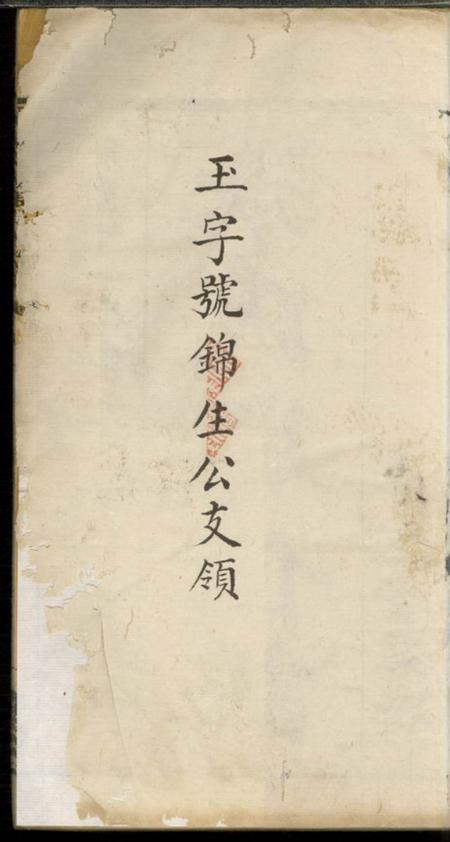 玉字號錦生公支領